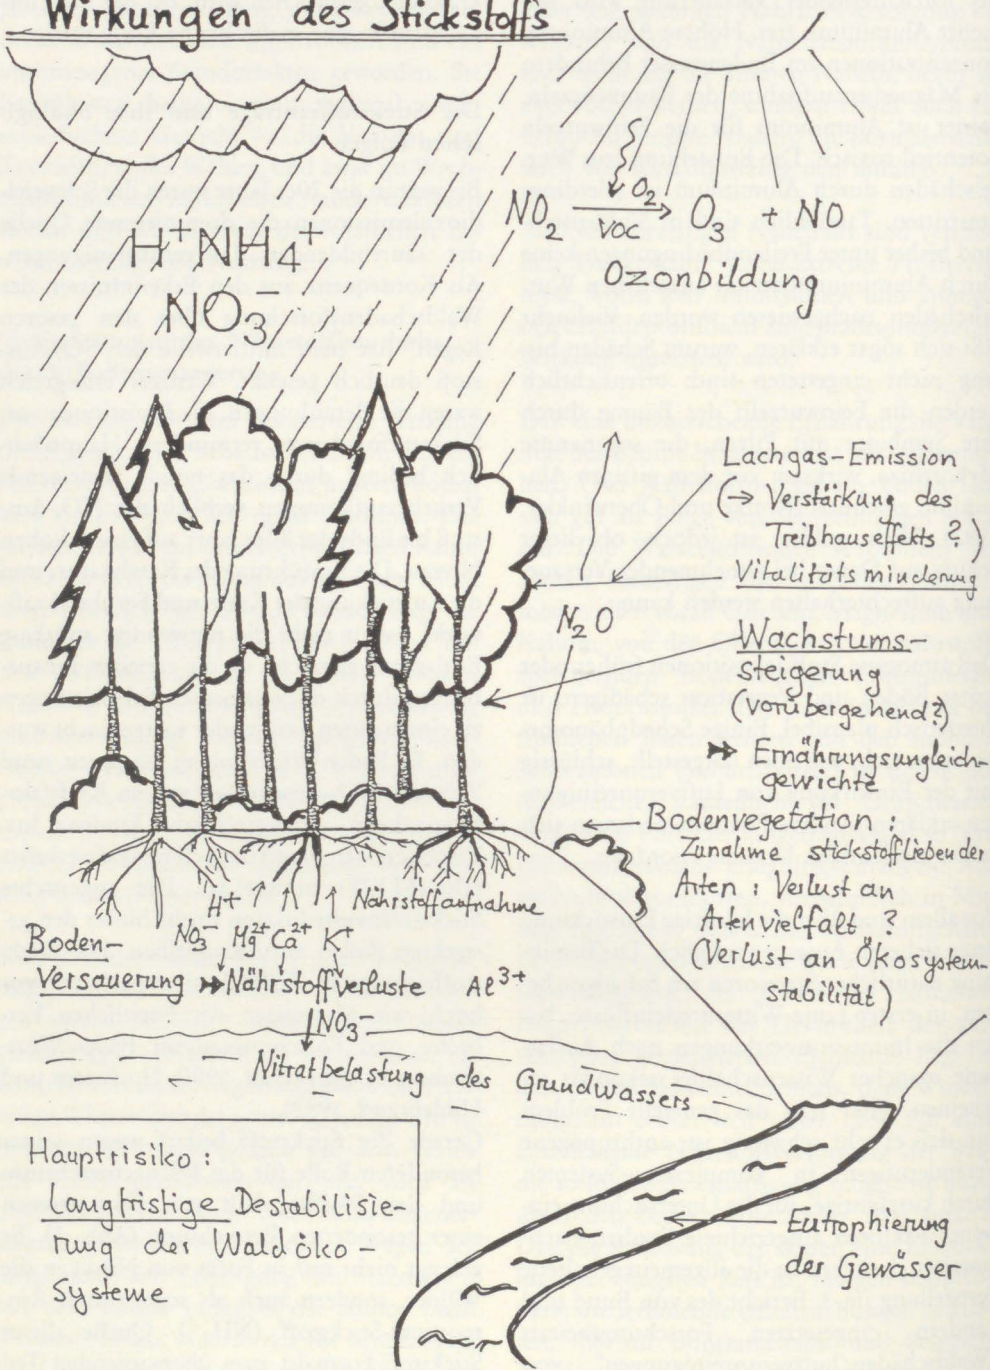 Wirkungen des Stickstoffs
H⁺NH₄⁺
NO₃⁻
NO₂ O₂ VOC O₃ + NO
Ozonbildung
Lachgas-Emission
(→ Verstärkung des
Treibhauseffekts ?)
Vitalitätsminderung
N₂O
Wachstums-
steigerung
(vorübergehend?)
Ernährungsungleich-
gewichte
Bodenvegetation :
Zunahme stickstoffliebender
Arten : Verlust an
Artenvielfalt ?
(Verlust an Ökosystem-
stabilität)
H⁺ Nährstoffaufnahme
NO₃⁻ Mg²⁺ Ca²⁺ K⁺
Boden-
Versauerung Nährstoffverluste Al³⁺
NO₃⁻
Nitratbelastung des Grundwassers
Hauptrisiko :
Langfristige Destabilisie-
rung der Waldöko-
Systeme
Eutrophierung
der Gewässer